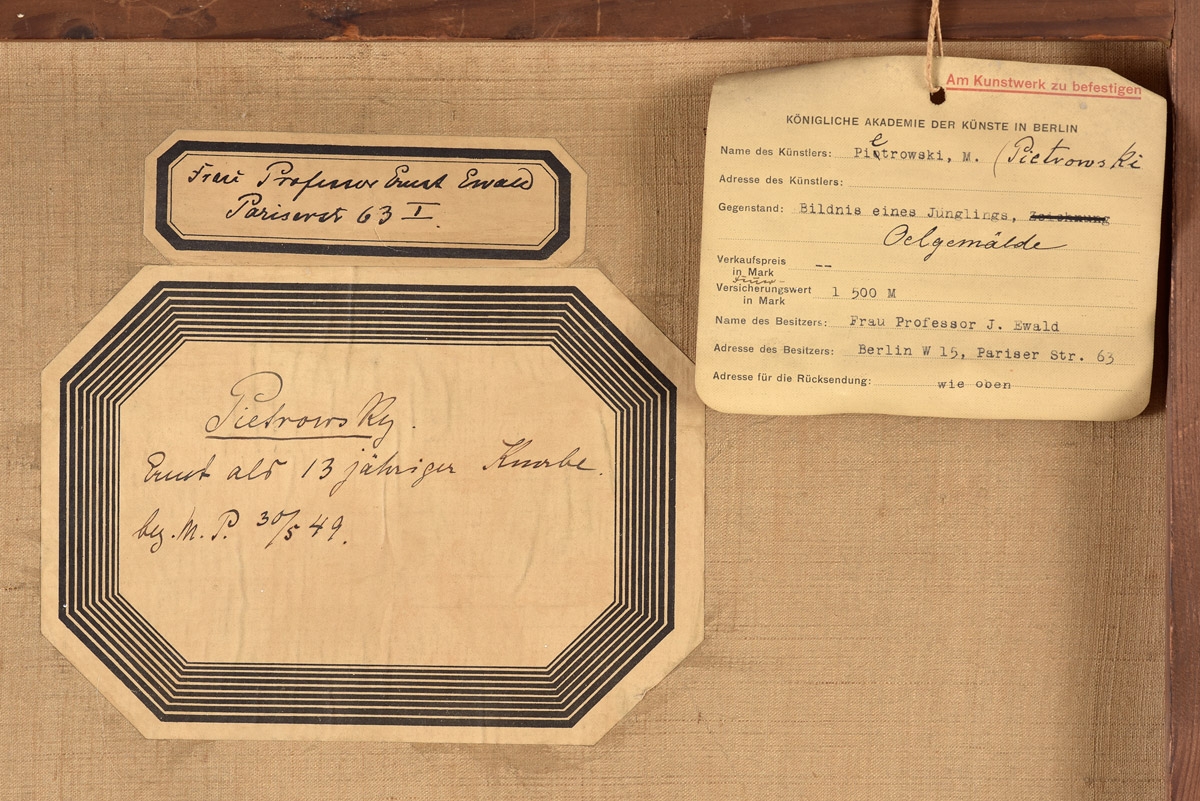 Frau Professor Ernst Ewald
Pariserstr 63 I.
Pietrowsky.
Ernst als 13 jähriger Knabe.
bez. M. P. 30/5 49.
Am Kunstwerk zu befestigen
KÖNIGLICHE AKADEMIE DER KÜNSTE IN BERLIN
Name des Künstlers: Pietrowski, M. (Pietrowski
Adresse des Künstlers:
Gegenstand: Bildnis eines Jünglings, Zeichnung
Oelgemälde
Verkaufspreis
in Mark --
Versicherungswert
in Mark 1 500 M
Name des Besitzers: Frau Professor J. Ewald
Adresse des Besitzers: Berlin W 15, Pariser Str. 63
Adresse für die Rücksendung: wie oben